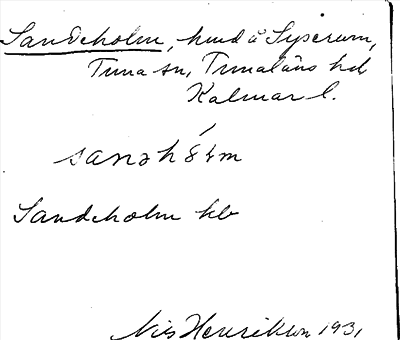 Sandeholm, hmd å Syserum,
Tuna sn, Tunaläns hd
Kalmar l.
sanəhólm
Sandeholm kb
Nils Henrikson 1931